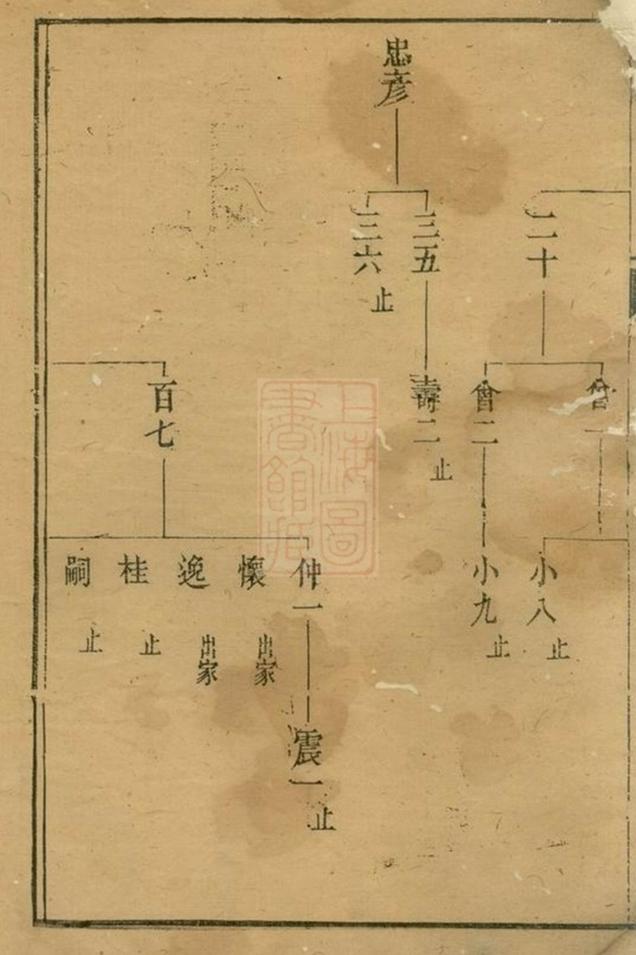 忠彦
二十
三五
三六
止
會一
會二
壽二
止
百七
小八
止
小九
止
仲一
懷
出家
逸
出家
桂
止
嗣
止
震一
止
上海圖
書館藏